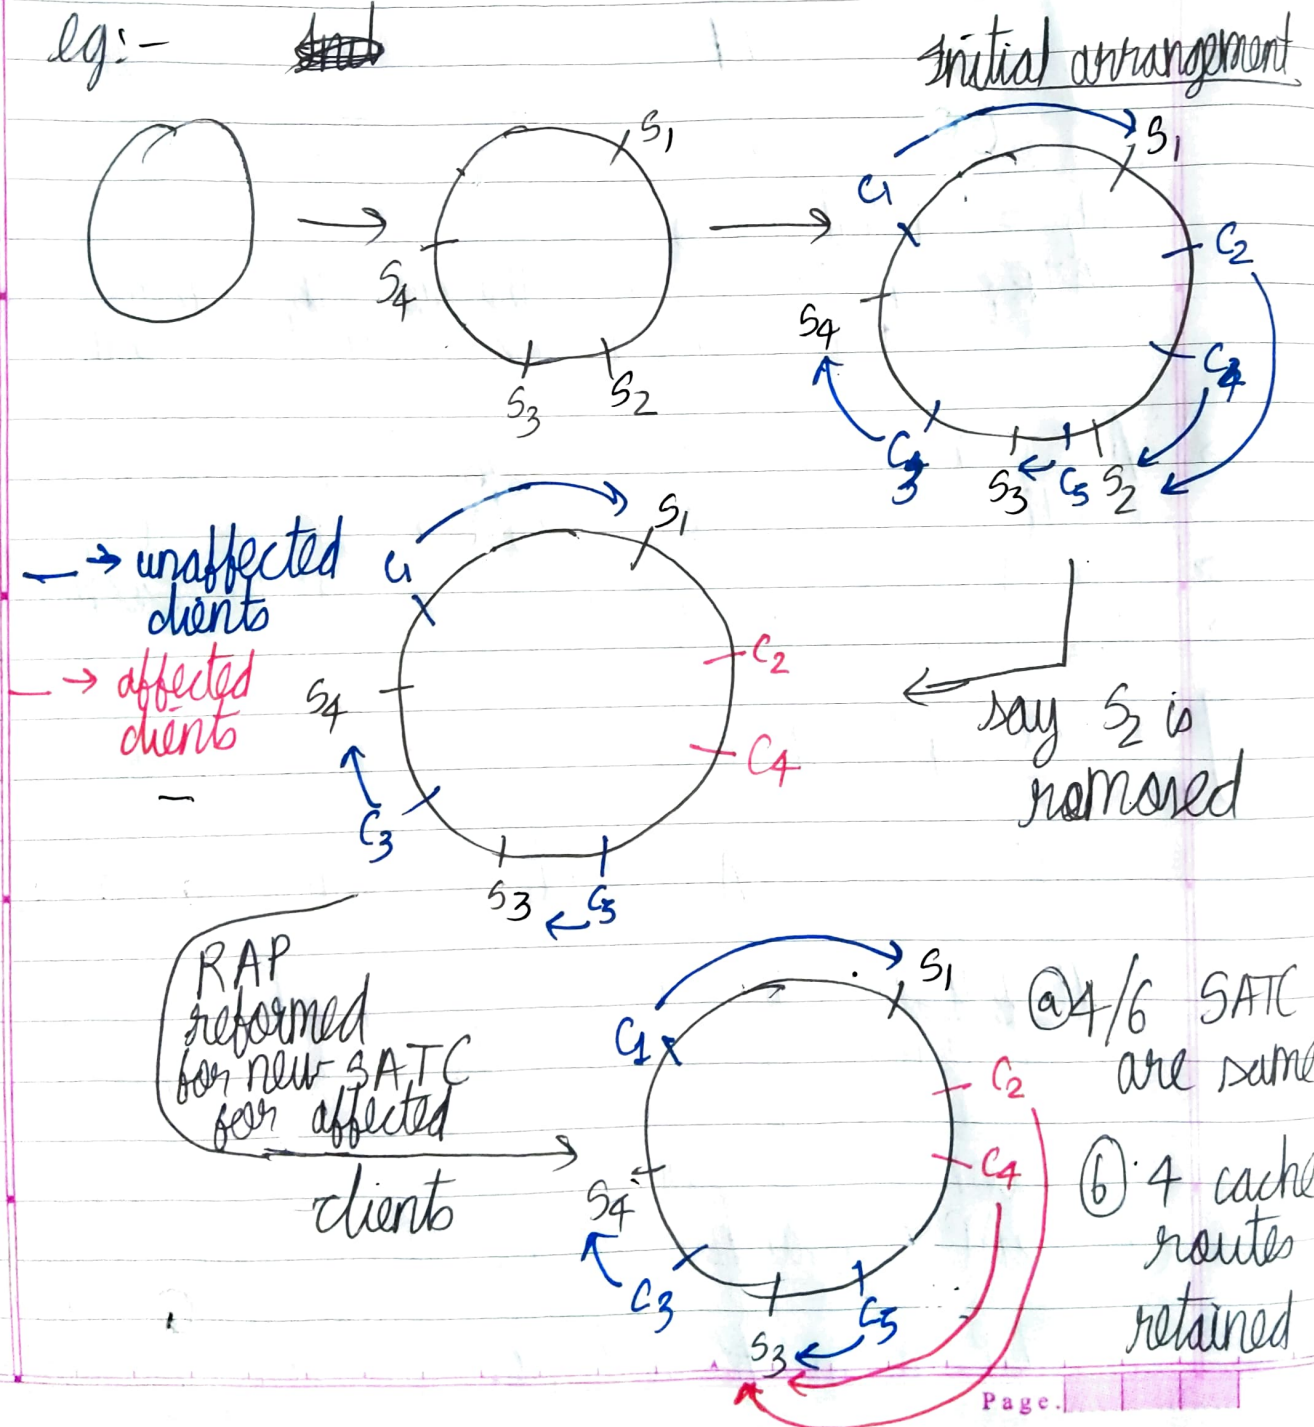 eg:-
Initial arrangement
S1
S4
S3
S2
S1
C1
C2
S4
C4
C3
S3
C5
S2
→ unaffected
clients
→ affected
clients
S1
C1
C2
S4
C4
C3
S3
C5
say S2 is
romoved
RAP
reformed
for new SATC
for affected
clients
S1
C1
C2
C4
S4
C3
C5
S3
ⓐ 4/6 SATC
are same
ⓑ 4 cache
routes
retained
Page.